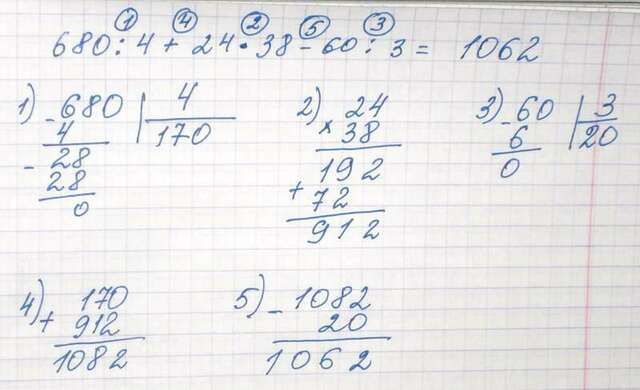 1 4 2 5 3
680 : 4 + 24 · 38 - 60 : 3 = 1062
1) - 680 | 4
4 170
- 28
28
0
2) 24
× 38
192
+ 72
912
3) - 60 | 3
6 20
0
4) 170
+ 912
1082
5) - 1082
20
1062